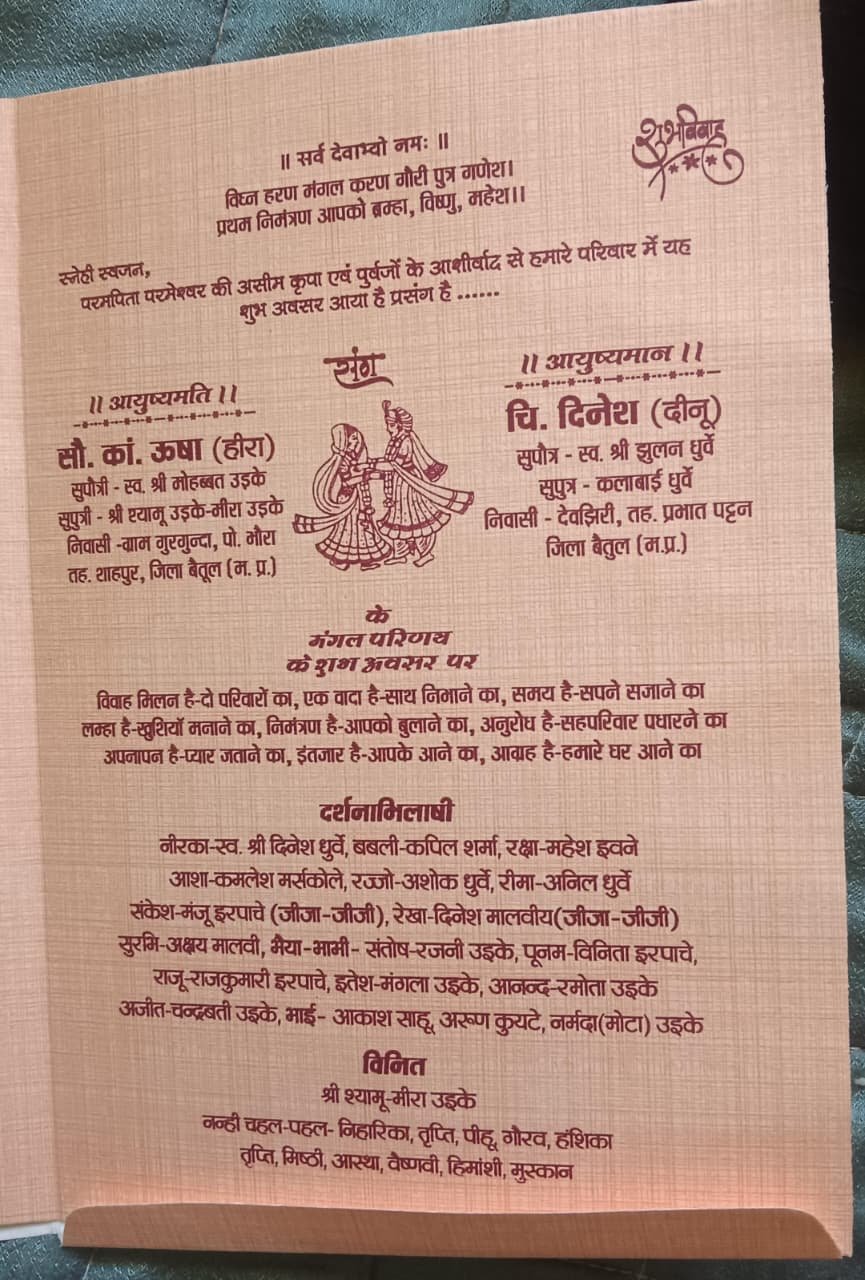 शुभविवाह
॥ सर्व देवाभ्यो नमः ॥
विघ्न हरण मंगल करण गौरी पुत्र गणेश।
प्रथम निमंत्रण आपको ब्रम्हा, विष्णु, महेश।।
स्नेही स्वजन,
परमपिता परमेश्वर की असीम कृपा एवं पुर्वजों के आशीर्वाद से हमारे परिवार में यह
शुभ अवसर आया है प्रसंग है ......
॥ आयुष्यमति ॥
सौ. कां. ऊषा (हीरा)
सुपौत्री - स्व. श्री मोहब्बत उइके
सुपुत्री - श्री श्यामू उइके-मीरा उइके
निवासी -ग्राम गुरगुन्दा, पो. भौरा
तह. शाहपुर, जिला बैतूल (म. प्र.)
संग
॥ आयुष्यमान ॥
चि. दिनेश (दीनू)
सुपौत्र - स्व. श्री झुलन धुर्वे
सुपुत्र - कलाबाई धुर्वे
निवासी - देवझिरी, तह. प्रभात पट्टन
जिला बैतुल (म.प्र.)
के
मंगल परिणय
के शुभ अवसर पर
विवाह मिलन है-दो परिवारों का, एक वादा है-साथ निभाने का, समय है-सपने सजाने का
लम्हा है-खुशियाॅ मनाने का, निमंत्रण है-आपको बुलाने का, अनुरोध है-सहपरिवार पधारने का
अपनापन है-प्यार जताने का, इंतजार है-आपके आने का, आग्रह है-हमारे घर आने का
दर्शनाभिलाषी
नीरका-स्व. श्री दिनेश धुर्वे, बबली-कपिल शर्मा, रक्षा-महेश इवने
आशा-कमलेश मर्सकोले, रज्जो-अशोक धुर्वे, रीमा-अनिल धुर्वे
संकेश-मंजू इरपाचे (जीजा-जीजी), रेखा-दिनेश मालवीय(जीजा-जीजी)
सुरभि-अक्षय मालवी, भैया-भाभी- संतोष-रजनी उइके, पूनम-विनिता इरपाचे,
राजू-राजकुमारी इरपाचे, इतेश-मंगला उइके, आनन्द-रमोता उइके
अजीत-चन्द्रबती उइके, भाई- आकाश साहू, अरूण कुयटे, नर्मदा(मोटा) उइके
विनित
श्री श्यामू-मीरा उइके
नन्ही चहल-पहल- निहारिका, तृप्ति, पीहू, गौरव, हंशिका
तृप्ति, मिष्ठी, आस्था, वैष्णवी, हिमांशी, मुस्कान